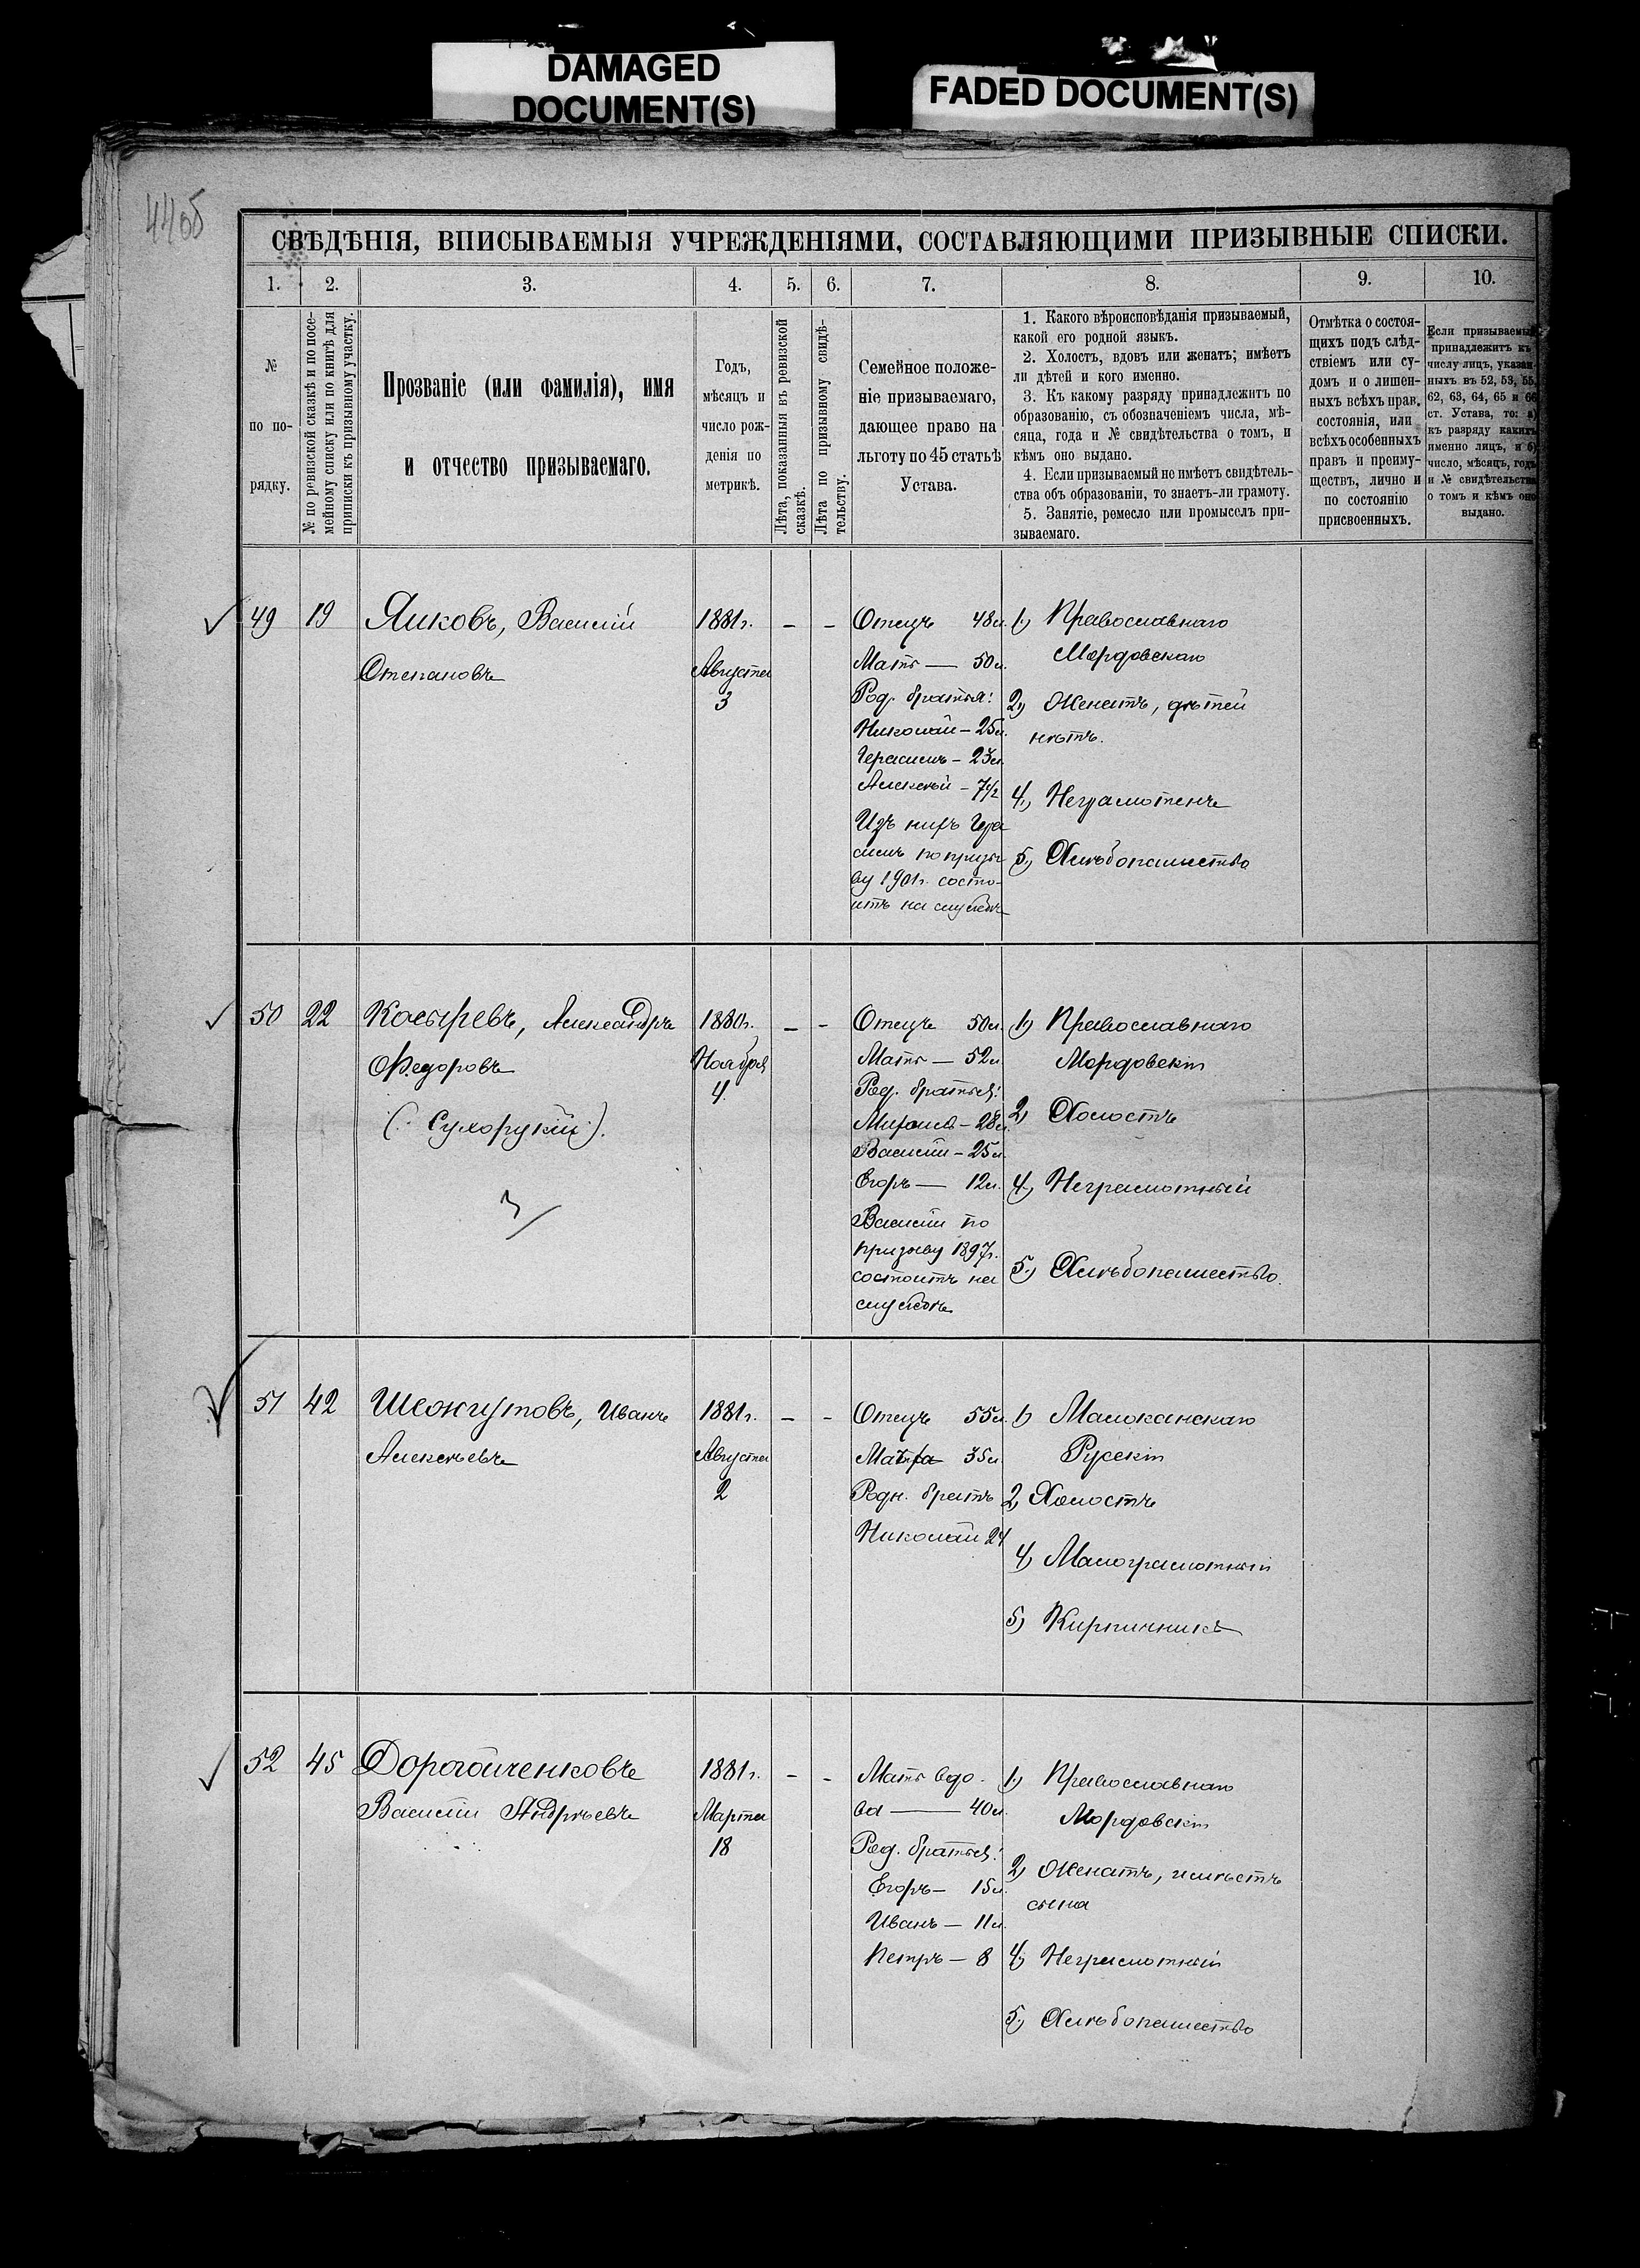 DAMAGED
DOCUMENT(S)
FADED DOCUMENT(S)
44об
СВѢДѢНІЯ, ВПИСЫВАЕМЫЯ УЧРЕЖДЕНІЯМИ, СОСТАВЛЯЮЩИМИ ПРИЗЫВНЫЕ СПИСКИ.
1. 2. 3. 4. 5. 6. 7. 8. 9. 10.
№
по по-
рядку.
№ по ревизской сказкѣ и по посе-
мейному списку или по книгѣ для
приписки къ призывному участку.
Прозваніе (или фамилія), имя
и отчество призываемаго.
Годъ,
мѣсяцъ и
число рож-
денія по
метрикѣ.
Лѣта, показанныя въ ревизской
сказкѣ.
Лѣта по призывному свидѣ-
тельству.
Семейное положе-
ніе призываемаго,
дающее право на
льготу по 45 статьѣ
Устава.
1. Какого вѣроисповѣданія призываемый,
какой его родной языкъ.
2. Холостъ, вдовъ или женатъ; имѣетъ
ли дѣтей и кого именно.
3. Къ какому разряду принадлежитъ по
образованію, съ обозначеніемъ числа, мѣ-
сяца, года и № свидѣтельства о томъ, и
кѣмъ оно выдано.
4. Если призываемый не имѣетъ свидѣтель-
ства объ образованіи, то знаетъ-ли грамоту.
5. Занятіе, ремесло или промыселъ при-
зываемаго.
Отмѣтка о состоя-
щихъ подъ слѣд-
ствіемъ или су-
домъ и о лишен-
ныхъ всѣхъ прав.
состоянія, или
всѣхъ особенныхъ
правъ и преиму-
ществъ, лично и
по состоянію
присвоенныхъ.
Если призываемый
принадлежитъ къ
числу лицъ, указан-
ныхъ въ 52, 53, 55,
62, 63, 64, 65 и 66
ст. Устава, то: а)
къ разряду какихъ
именно лицъ, и б)
число, мѣсяцъ, годъ
и № свидѣтельства
о томъ и кѣмъ оно
выдано.
49 19 Яиковъ, Василій
Степановъ
1881г.
Августа
3
– –
Отецъ 48л.
Мать — 50л.
Род. братья:
Николай – 25л.
Герасимъ – 23л.
Алексѣй – 7½
Изъ нихъ Гера
симъ по призы
ву 1901г. состо-
итъ на службѣ
1) Православнаго
Мордовскаго
2) Женатъ, дѣтей
нѣтъ.
4) Неграмотенъ
5) Хлѣбопашество
50 22 Косыревъ, Александръ
Федоровъ
(Сухорукій).
1880г.
Ноября
4.
– –
Отецъ 50л.
Мать — 52л
Род. братья:
Миронъ – 28л.
Василій – 25л.
Егоръ — 12л.
Василій по
призыву 1897г.
состоитъ на
службѣ
1) Православнаго
Мордовскій
2) Холостъ
4) Неграмотный
5) Хлѣбопашество.
51 42 Шежгутовъ, Иванъ
Алексѣевъ
1881г.
Августа
2
– –
Отецъ 55л.
35л
Родн. братъ
Николай 24
1) Малоканскаго
Русскій
2) Холостъ
4) Малограмотный
5) Кирпичникъ
52 45 Дорогойченковъ
Василій Андрѣевъ
1881г.
Марта
18
– –
Мать вдо-
ва — 40л.
Род. братья:
Егоръ – 15л.
Иванъ – 11л.
Петръ – 8
1) Православнаго
Мордовскій
2) Женатъ, имѣетъ
сына
4) Неграмотный
5) Хлѣбопашество